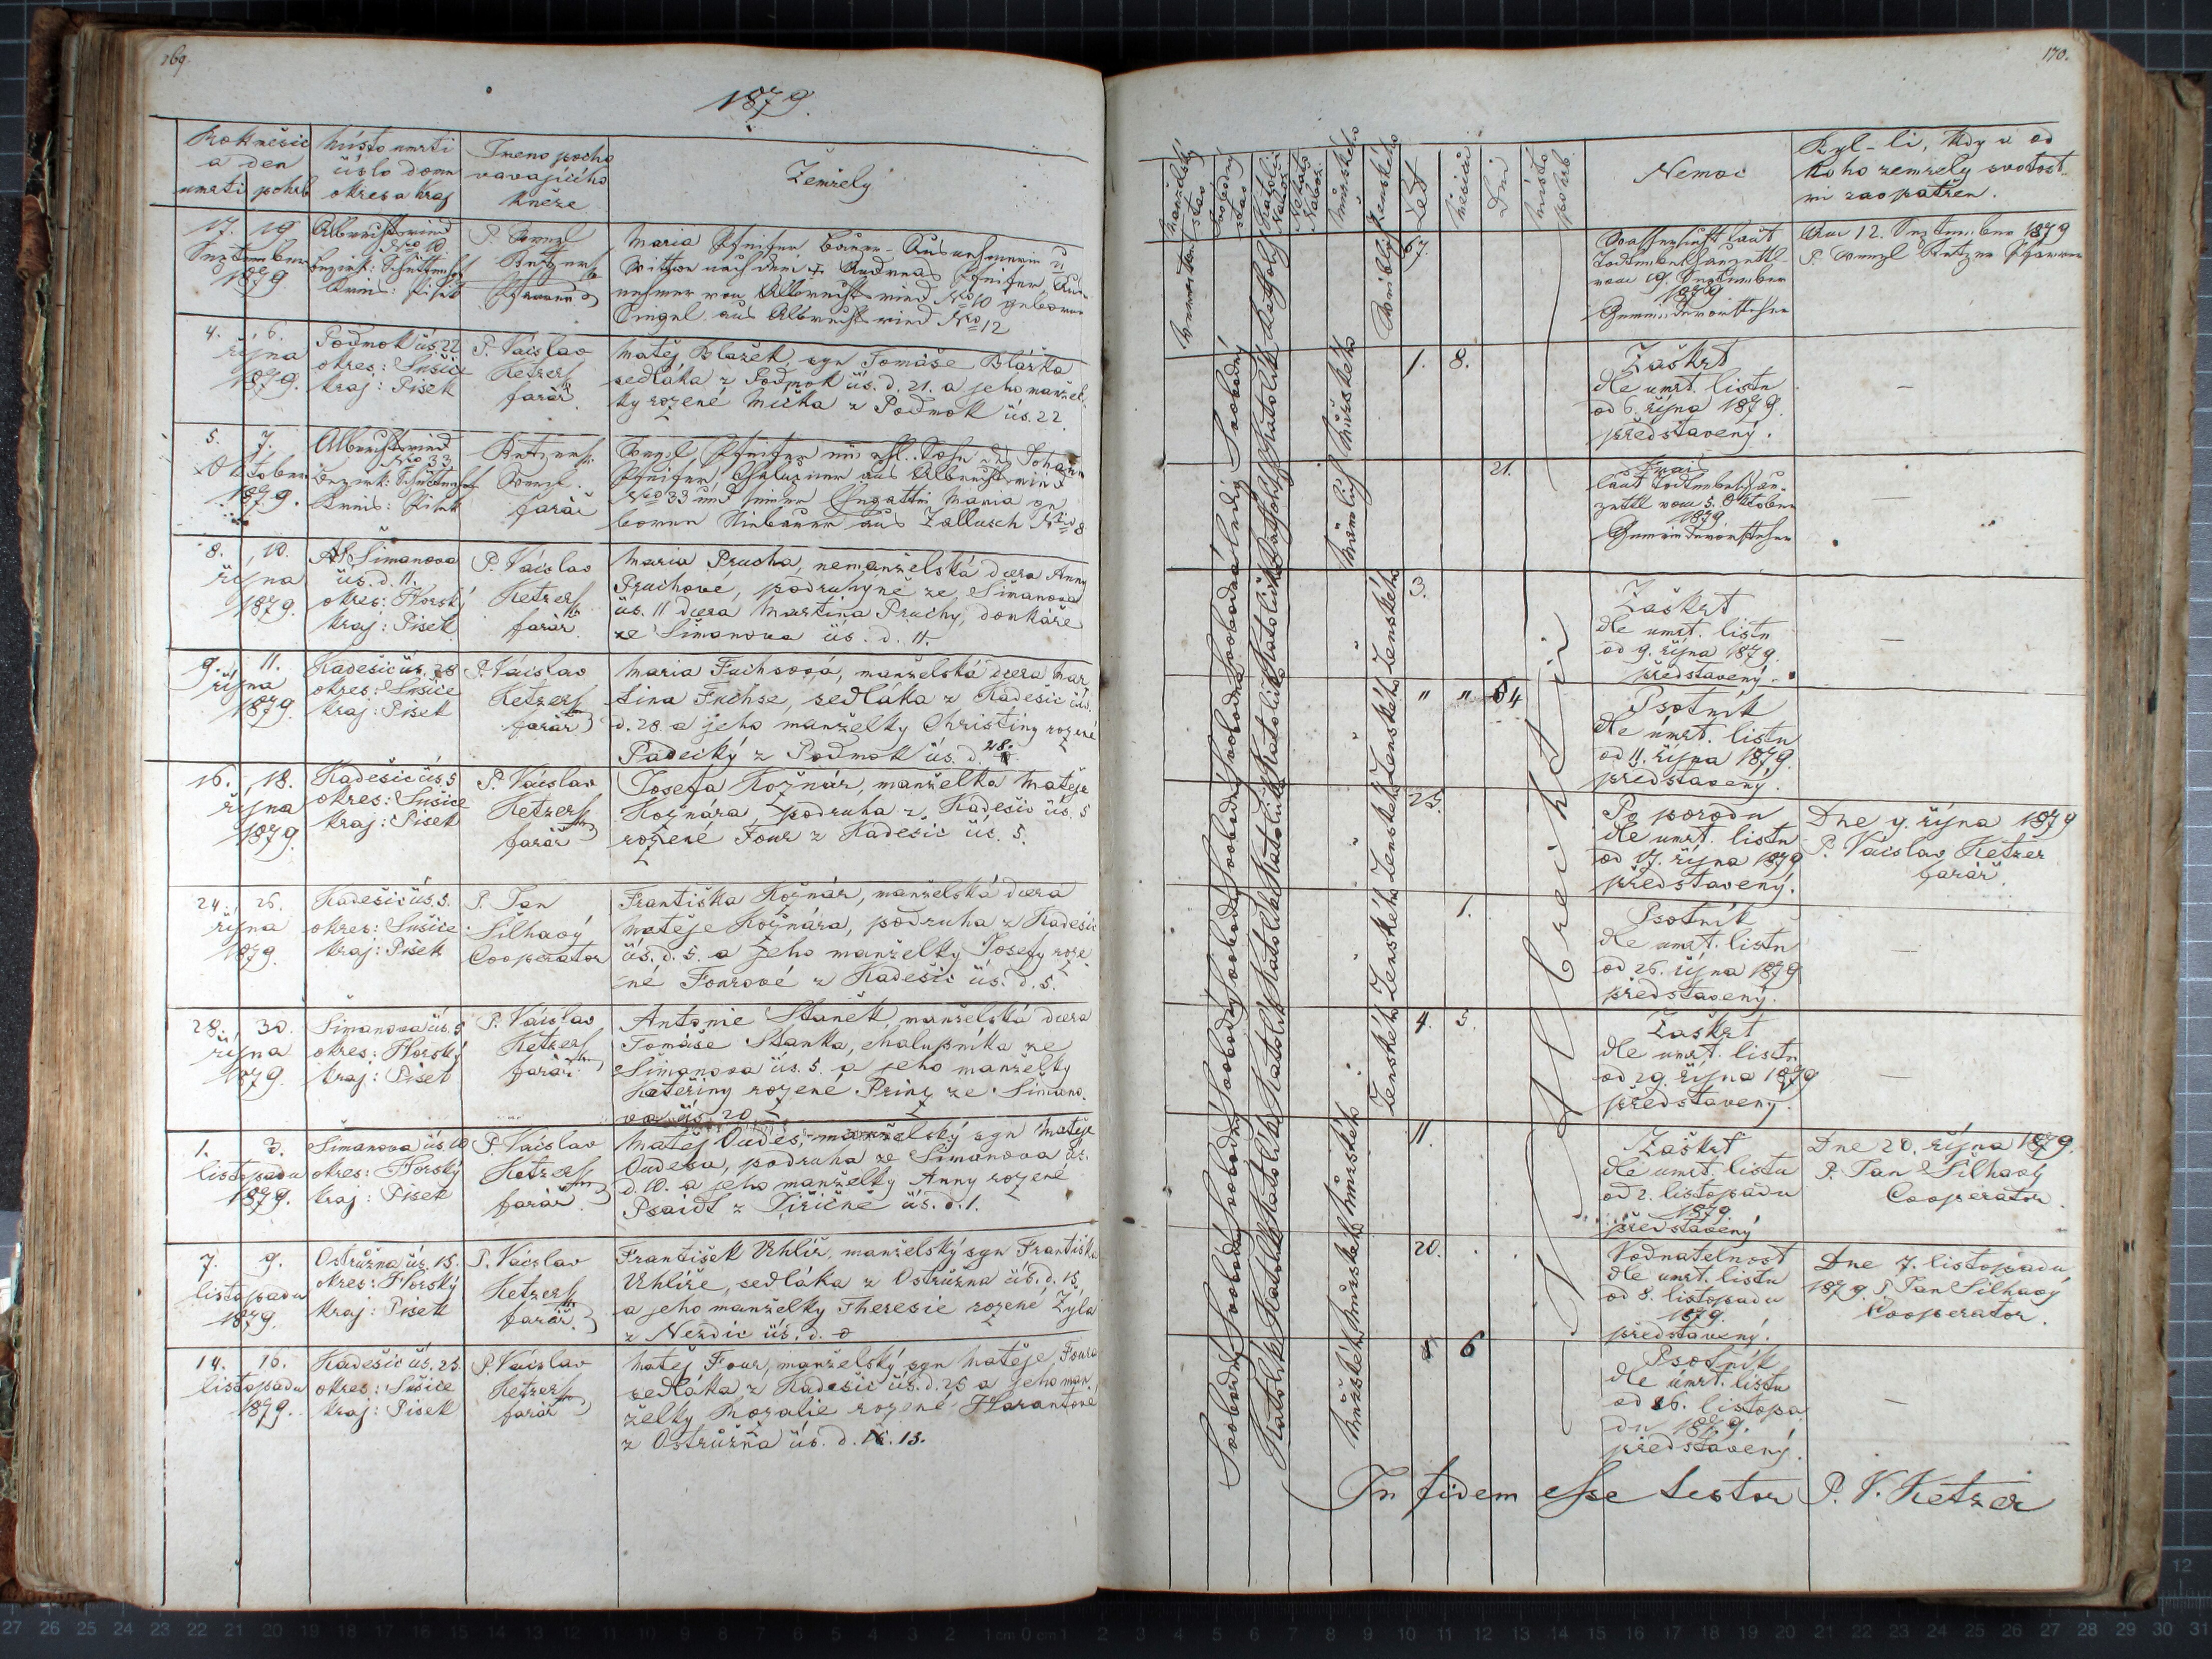 169.
1879.
Rok měsíc
a den
umrti pohrb
Místo umrti
čislo domu
okres a kraj
Jmeno pocho
vavajícího
kněze
Zemřelý
17. 19
September
1879
Albrechtsried
Nro 10
Bezirk: Schüttenhof
Kreis: Pisek
P. Wenzl
Ketzer
Pfarrer
Maria Pfeifer Bauer-Ausnehmerin
Wittwe nach dem † Andreas Pfeifer, Aus
nehmer von Albrechtsried Nro 10 geborne
aus Albrechtsried Nro 12
4. 6.
října
1879.
Podmok čís 22
okres: Sušice
kraj: Pisek
P. Václav
Ketzer
farář
Matěj Blažek syn Tomáše Blážka
sedláka z Podmok čís. d. 21. a jeho manžel
ky rozené Mička z Podmok čís. 22.
5. 7.
Oktober
1879.
Albrechtsried
Nro 33
Bezirk: Schüttenhof
Kreis: Pisek
Ketzer
Wenzl
farář
Wenzl Pfeifer ein ehl. Sohn des Johann
Pfeifer, Chalupner aus Albrechtsried
Nro 33 und seiner Ehegattin Maria ge
borene Niebauer aus Zallusch Nro 8
8. 10.
října
1879.
Šimanova
čís. d. 11.
okres: Horský
kraj: Pisek
P. Václav
Ketzer
farář
Maria Prucha, nemanželská dcera Anny
Pruchové, podruhyně ze Šimanova
čís. 11 dcera Martina Pruchy, domkáře
ze Šimanova čís. d. 11.
9. 11.
října
1879.
Kadešic čís. 28
okres: Sušice
kraj: Pisek
P. Václav
Ketzer
farář
Maria Fuchsová, manželská dcera Mar
tina Fuchse, sedláka z Kadešic čís.
d. 28. a jeho manželky Christiny rozené
Padecký z Podmok čís. d. 28.
16. 18.
října
1879.
Kadešic čís. 5
okres: Sušice
kraj: Pisek
P. Václav
Ketzer
farář
Josefa Kožnár, manželka Matěje
Kožnára, podruha z Kadešic čís. 5
rozené Four z Kadešic čís. 5.
24. 26.
října
1879.
Kadešic čís. 5.
okres: Sušice
kraj: Pisek
P. Jan
Šilhavý
Cooperator
Františka Kožnár, manželská dcera
Matěje Kožnára, podruha z Kadešic
čís. d. 5. a jeho manželky Josefy roze
né Fourové z Kadešic čís. d. 5.
28. 30.
října
1879.
Šimanova čís. 5
okres: Horský
kraj: Pisek
P. Václav
Ketzer
farář
Antonie Staněk manželská dcera
Tomáše Stanka, chalupníka ze
Šimanova čís. 5. a jeho manželky
Kateřiny rozené Prinz ze Šimano
va čís. 20.
1. 3.
listopadu
1879.
Šimanova čís. 10
okres: Horský
kraj: Pisek
P. Václav
Ketzer
farář
Matěj Oudes, manželský syn Matěje
Oudesa, podruha ze Šimanova čís.
d. 10. a jeho manželky Anny rozené
Psaidl z Jiřičné čís. d. 1.
7. 9.
listopadu
1879.
Ostružna čís. 15.
okres: Horský
kraj: Pisek
P. Václav
Ketzer
farář
František Uhlíř, manželský syn Františka
Uhlíře, sedláka z Ostružna čís. d. 15
a jeho manželky Theresie rozené Zýla
z Nezdic čís. d.
14. 16.
listopadu
1879.
Kadešic čís. 25.
okres: Sušice
kraj: Pisek
P. Václav
Ketzer
farář
Matěj Four, manželský syn Matěje Foura
sedláka z Kadešic čís. d. 25 a jeho man
želky Rozalie rozené Harantové
z Ostružna čís. d. 13.
170.
Manželský
stav
Svobodný
stav
Katolic
Nábož.
Nekato
Nábož.
Mužského
Ženského
Let
Měsíců
Dní
Místo
pohrb.
Nemoc
Byl-li, kdy a od
koho zemřelý svátost
mi zaopatřen.
Verwitwet
Katholisch
Weiblich
67.
Wassersucht laut
Todtenbeschauzettl
vom 19. September
1879
Gemeindevorsteher
Am 12. September 1879
P. Wenzl Ketzer Pfarrer
Svobodný
Katolík
Mužského
1. 8.
Záškrt
dle umrt. listu
od 6. října 1879.
představený.
—
ledig
Katholisch
Mänlich
21.
Frais
laut Todtenbeschau-
zettl vom 5. Oktober
1879
Gemeindevorsteher
—
Svobodná
Katolička
Ženského
3.
Záškrt
dle umrt. listu
od 9. října 1879.
představený
—
Svobodná
Katolička
Ženského
" " 14
Psotník
dle úmrt. listu
od 11. října 1879.
představený.
Ženského
25.
Po porodu
dle umrt. listu
od 17. října 1879
představený.
Dne 9. října 1879
P. Václav Ketzer
farář.
Ženského
1.
Psotník
dle umrt. listu
od 26. října 1879
představený.
—
Ženského
4. 5.
Záškrt
dle umrt. listu
od 29. října 1879
představený.
—
Svobodný
Katolík
Mužského
11.
Záškrt
dle umrt. listu
od 2. listopadu
1879.
představený
Dne 20. října 1879.
P. Jan Šilhavý
Cooperator.
Svobodný
Katolík
Mužského
20.
Vodnatelnost
dle umrt. listu
od 8. listopadu
1879.
představený.
Dne 7. listopadu
1879. P. Jan Šilhavý
Cooperator.
Svobodný
Katolík
Mužského
6
Psotník
dle úmrt. listu
od 16. listopa
du 1879.
představený.
—
In fidem esse testor P. V. Ketzer